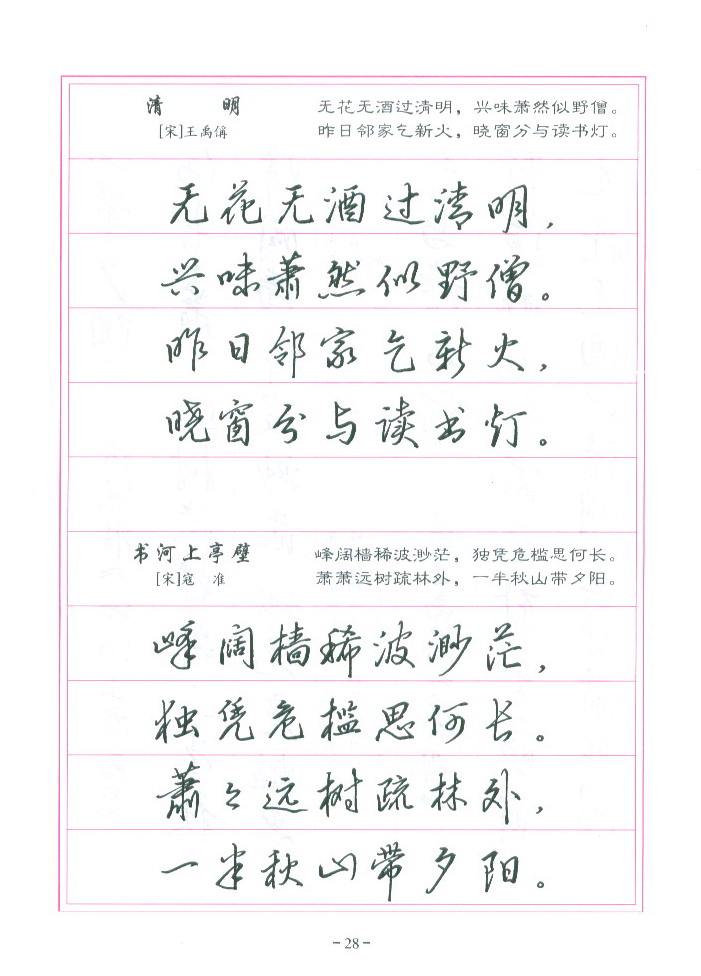 清 明
[宋]王禹偁
无花无酒过清明，兴味萧然似野僧。
昨日邻家乞新火，晓窗分与读书灯。
无花无酒过清明，
兴味萧然似野僧。
昨日邻家乞新火，
晓窗分与读书灯。
书河上亭壁
[宋]寇 准
峰阔樯稀波渺茫，独凭危槛思何长。
萧萧远树疏林外，一半秋山带夕阳。
峰阔樯稀波渺茫，
独凭危槛思何长。
萧々远树疏林外，
一半秋山带夕阳。
-28-